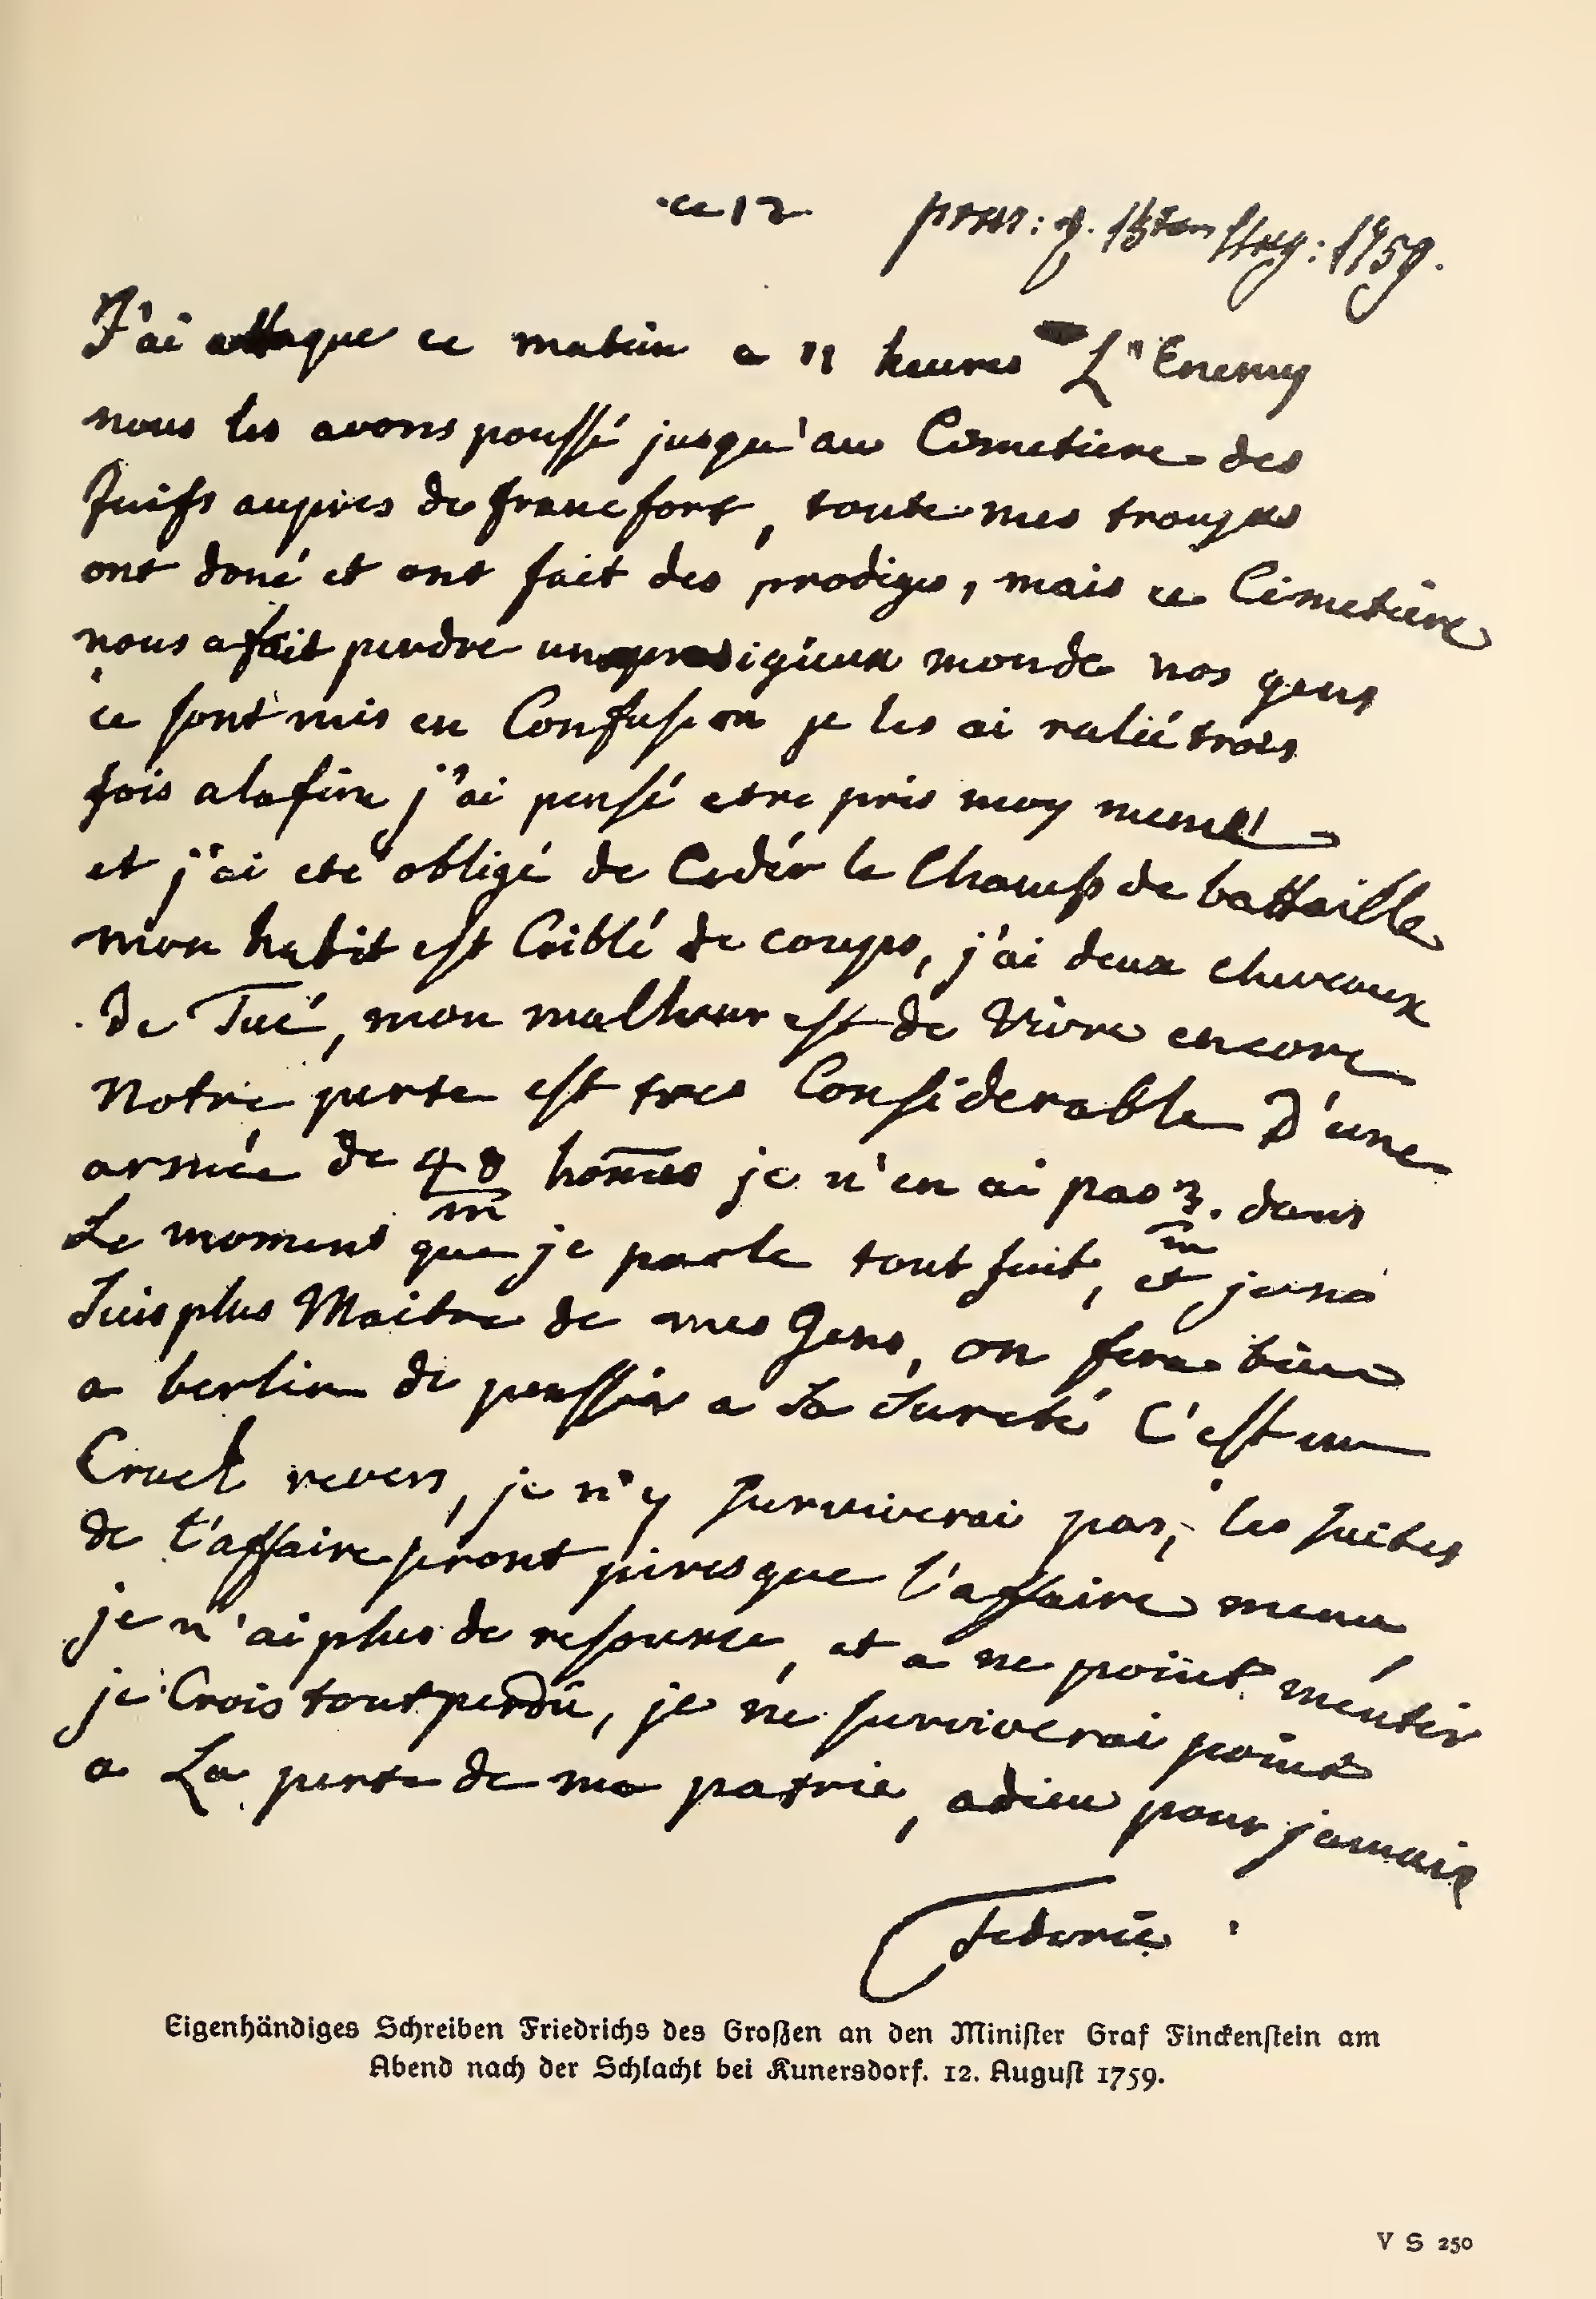 ce 12 praes: d. 13ten Aug: 1759.
J'ai attaque ce matin a 11 heures L'Enemy
nous les avons poussé jusqu'au Cimetiere des
Juifs aupres de francfort, toute mes troupes
ont doné et ont fait des prodiges, mais ce Cimetière
nous a fait perdre un prodigieux monde nos gens
ce sont mis en Confusion je les ai ralié trois
fois a la fin j'ai pensé estre pris moy meme
et j'ai eté obligé de Cedér le Champ de battaille
mon habit est Criblé de coups, j'ai deux chevaux
de Tué, mon malheur est de Vivre encore
Notre perte est tres Considerable D'une
armée de 48 hom̄es je n'en ai pas 3. dans
m̄ m̄
Le moment que je parle tout fuit, et je ne
Suis plus Maitre de mes Gens, on fera bien
a berlin de penssér a Sa Sureté C'est un
Cruel revers, je n'y surviverai pas, les suites
de l'affaire seront pires que l'affaire meme
je n'ai plus de resource, et a ne point méntir
je Crois tout perdû, je ne surviverai point
a La perte de ma patrie, adieu pour jamais
Federic
Eigenhändiges Schreiben Friedrichs des Großen an den Minister Graf Finckenstein am
Abend nach der Schlacht bei Kunersdorf. 12. August 1759.
V S 250